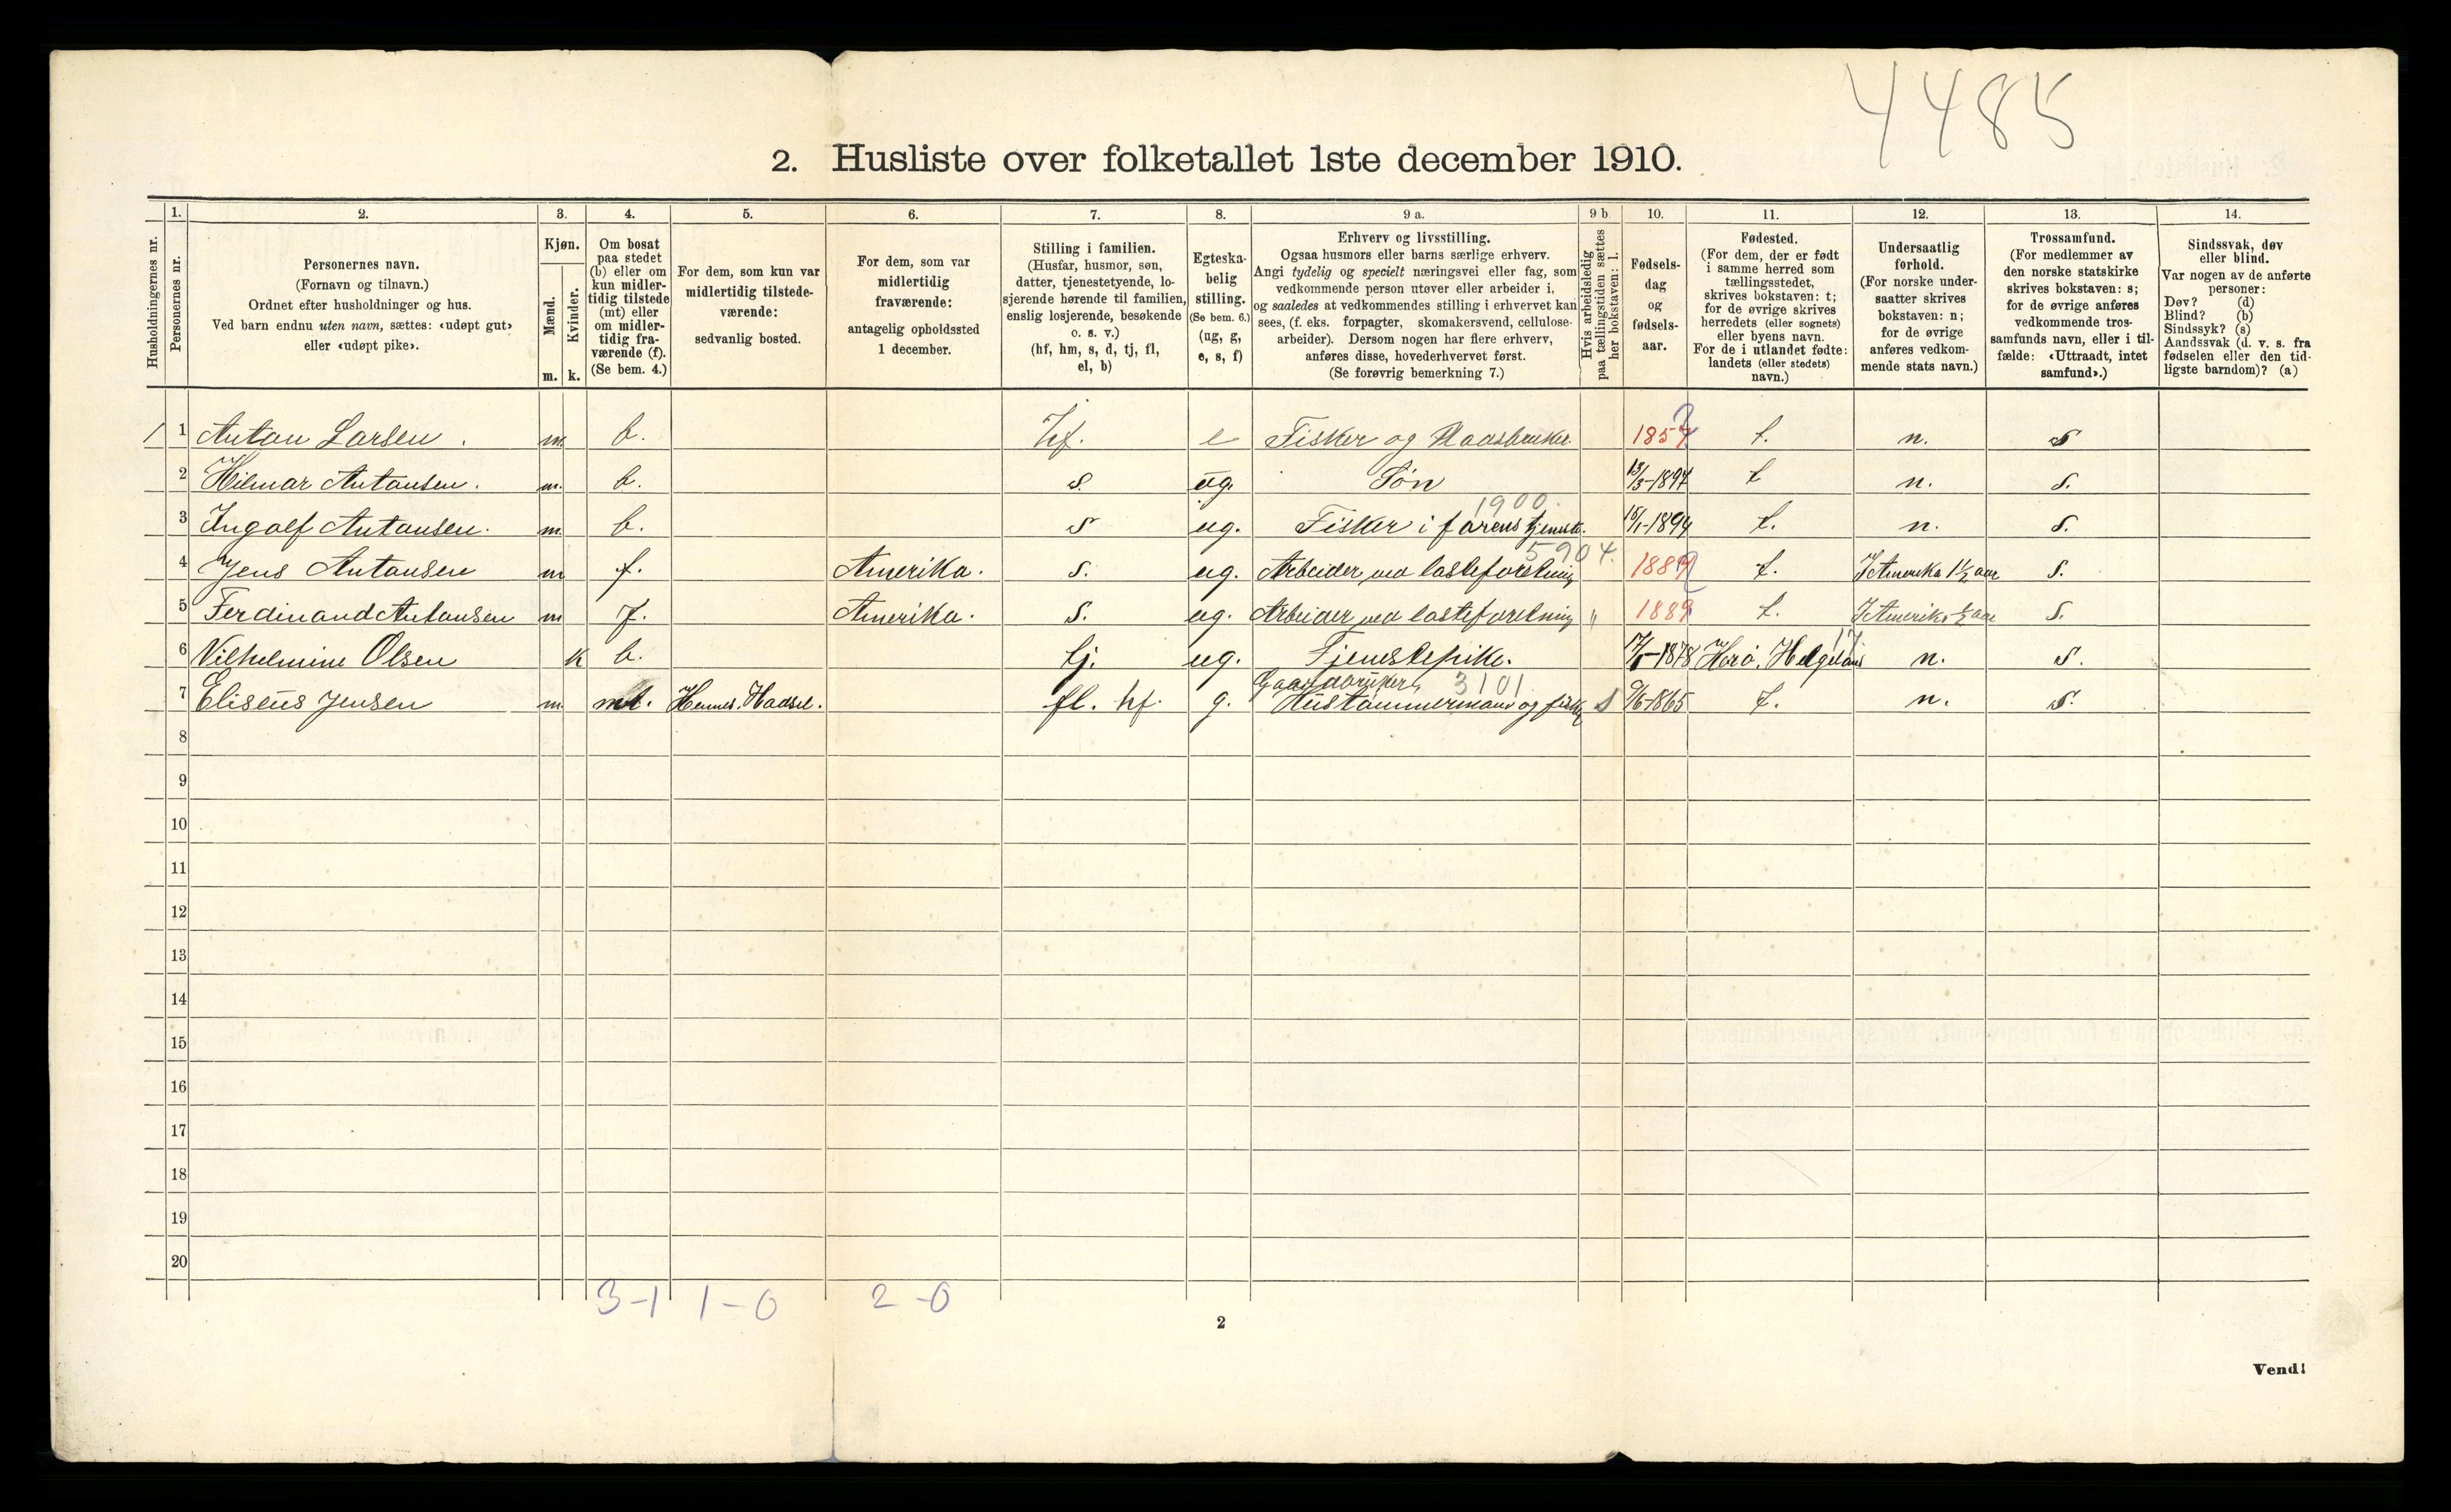 4485
2. Husliste over folketallet 1ste december 1910.
Husholdningernes nr.
1.
Personernes nr.
2.
Personernes navn.
(Fornavn og tilnavn.)
Ordnet efter husholdninger og hus.
Ved barn endnu uten navn, sættes: «udøpt gut»
eller «udøpt pike».
3.
Kjøn.
Mænd.
Kvinder.
m. k.
4.
Om bosat
paa stedet
(b) eller om
kun midler-
tidig tilstede
(mt) eller
om midler-
tidig fra-
værende (f).
(Se bem. 4.)
5.
For dem, som kun var
midlertidig tilstede-
værende:
sedvanlig bosted.
6.
For dem, som var
midlertidig
fraværende:
antagelig opholdssted
1 december.
7.
Stilling i familien.
(Husfar, husmor, søn,
datter, tjenestetyende, lo-
sjerende hørende til familien,
enslig losjerende, besøkende
o. s. v.)
(hf, hm, s, d, tj, fl,
el, b)
8.
Egteska-
belig
stilling.
(Se bem. 6.)
(ug, g,
e, s, f)
9 a.
Erhverv og livsstilling.
Ogsaa husmors eller barns særlige erhverv.
Angi tydelig og specielt næringsvei eller fag, som
vedkommende person utøver eller arbeider i,
og saaledes at vedkommendes stilling i erhvervet kan
sees, (f. eks. forpagter, skomakersvend, cellulose-
arbeider). Dersom nogen har flere erhverv,
anføres disse, hovederhvervet først.
(Se forøvrig bemerkning 7.)
9 b
Hvis arbeidsledig
paa tællingstiden sættes
her bokstaven: l.
10.
Fødsels-
dag
og
fødsels-
aar.
11.
Fødested.
(For dem, der er født
i samme herred som
tællingsstedet,
skrives bokstaven: t;
for de øvrige skrives
herredets (eller sognets)
eller byens navn.
For de i utlandet fødte:
landets (eller stedets)
navn.)
12.
Undersaatlig
forhold.
(For norske under-
saatter skrives
bokstaven: n;
for de øvrige
anføres vedkom-
mende stats navn.)
13.
Trossamfund.
(For medlemmer av
den norske statskirke
skrives bokstaven: s;
for de øvrige anføres
vedkommende tros-
samfunds navn, eller i til-
fælde: «Uttraadt, intet
samfund».)
14.
Sindssvak, døv
eller blind.
Var nogen av de anførte
personer:
Døv? (d)
Blind? (b)
Sindssyk? (s)
Aandssvak (d. v. s. fra
fødselen eller den tid-
ligste barndom)? (a)
1 1 Antan Larsen. m. b. hf. e Fisker og Kaasbruker. 1857 t. n. s
2 Hilmar Antansen. m. b. s. ug. Søn 13/3-1897 t n. s.
1900.
3 Ingolf Antansen. m. b. s ug. Fisker i farens tjeneste. 15/1-1894 t. n. s.
5904.
4 Jens Antansen m f. Amerika. s. ug. Arbeider ved lasteforetning 1889 t. I Amerika 1½ aar s.
5 Ferdinand Antansen m f. Amerika. s. ug. Arbeider ved lasteforetning " 1889 t. I Amerika ½ aar s.
6 Vilhelmine Olsen k b. tj. ug. Tjenestepike. 1878 Herø, Helgeland n. s.
Gaardbruker, 3101
7 Eliseus Jensen m mt. Hennes. Hadsel. fl. hf. g. Hustømmermand og fisker 9/6-1865 t. n. s.
8
9
10
11
12
13
14
15
16
17
18
19
20
3-1 1-0 2-0
2
Vend!